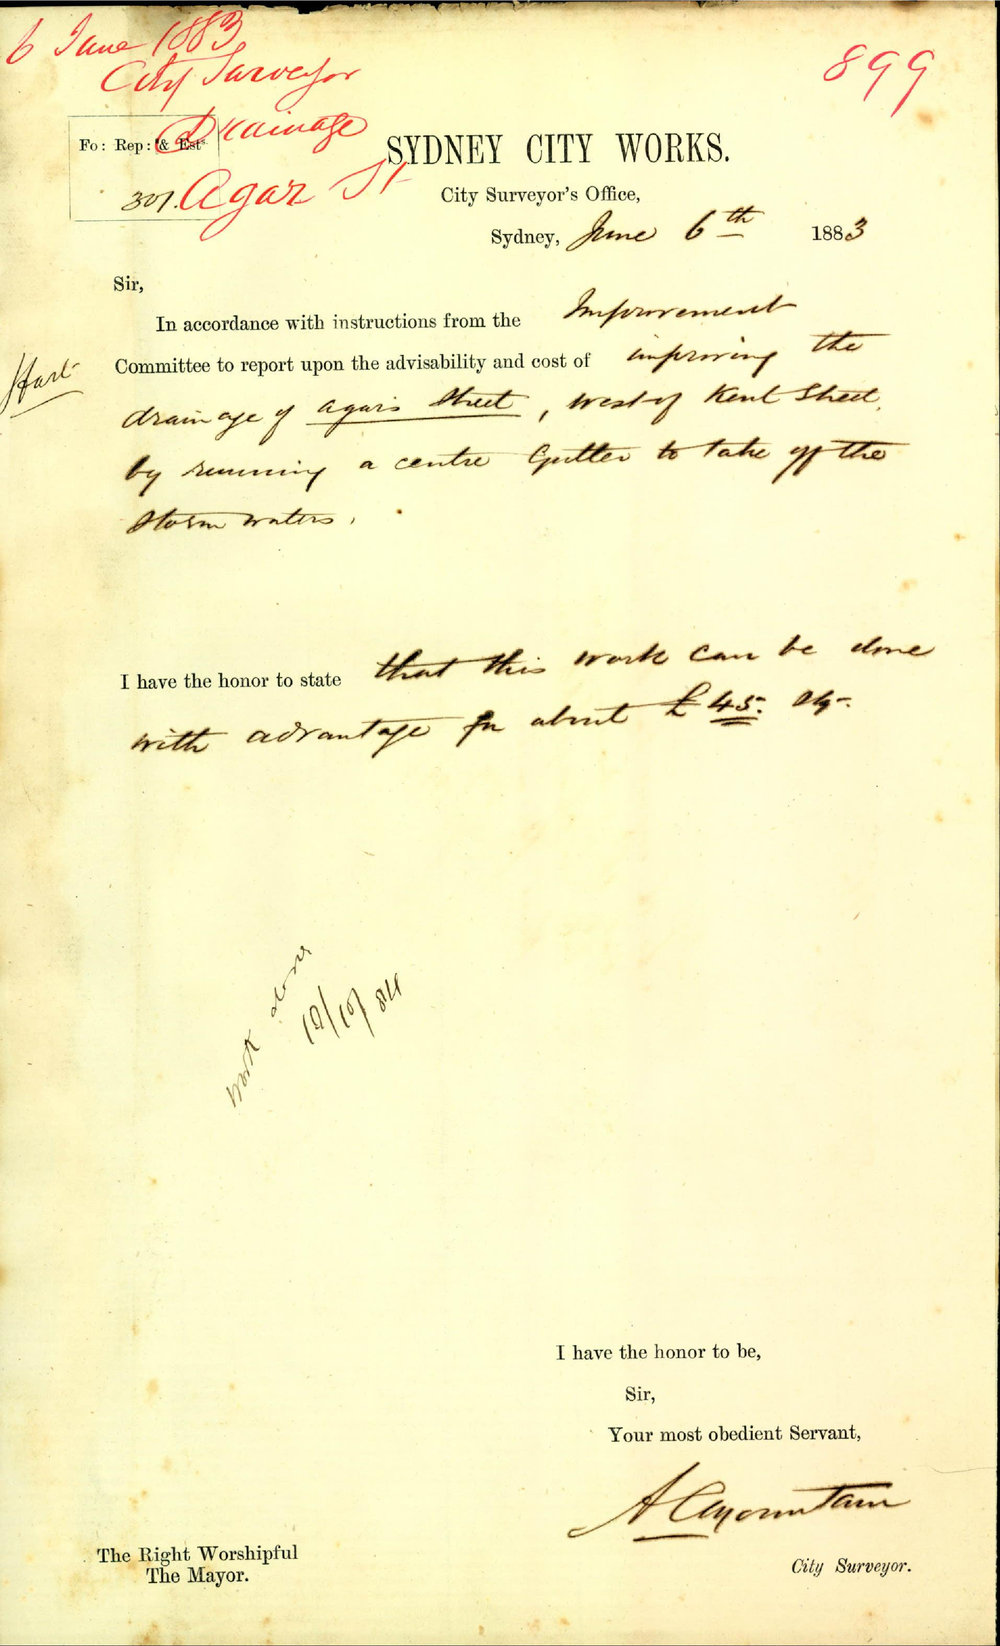 6 June 1883
City Surveyor
Drainage
Agar St
899
Fo: Rep: & Est^s.
307.
SYDNEY CITY WORKS.
City Surveyor's Office,
Sydney, June 6th 1883
Sir,
In accordance with instructions from the Improvement
Committee to report upon the advisability and cost of improving the
drainage of Agars Street, west of Kent Street,
by running a centre Gutter to take off the
Storm waters.
I have the honor to state that this work can be done
with advantage for about £45.
work done
10/84
I have the honor to be,
Sir,
Your most obedient Servant,
A C Mountain
City Surveyor.
The Right Worshipful
The Mayor.